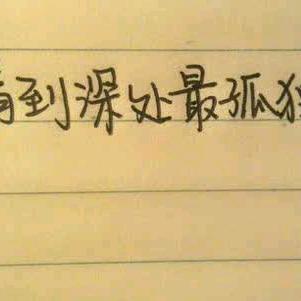 到深处最孤